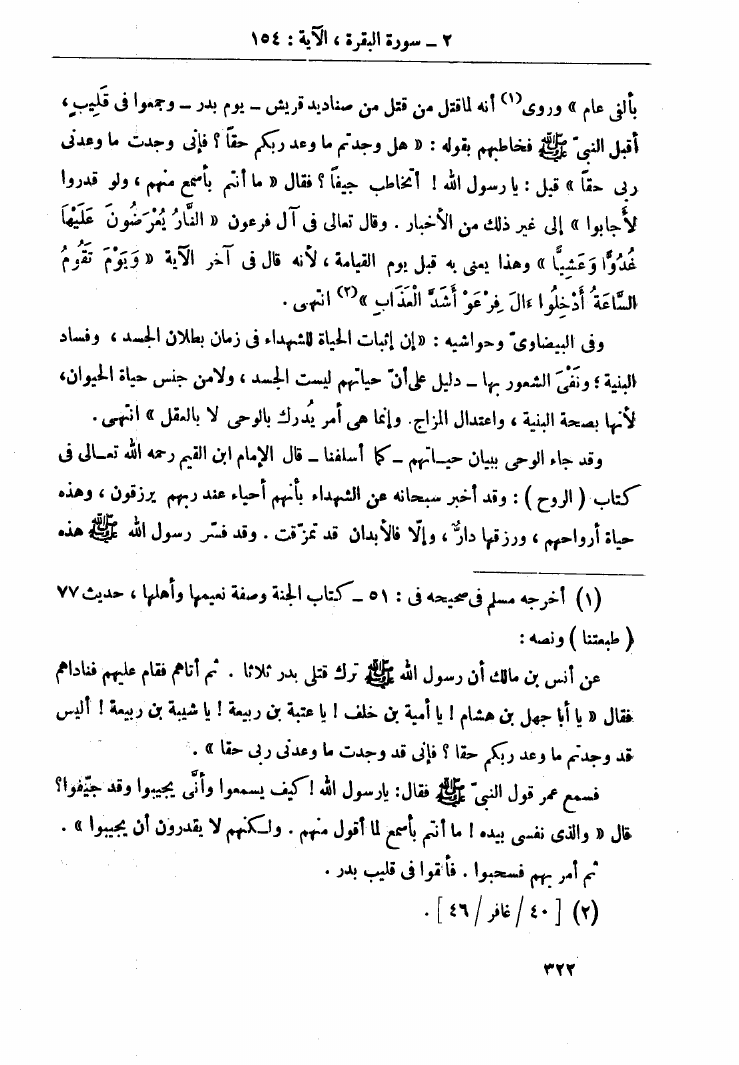 ٢ ــ سورة البقرة ، الآية : ١٥٤
بألفى عام » وروى(١) أنه لماقتل من قتل من صناديد قريش ــ يوم بدر ــ وجمعوا فى قَلِيبٍ ،
أقبل النبىّ ﷺ فخاطبهم بقوله : « هل وجدتم ما وعد ربكم حقاً ؟ فإنى وجدت ما وعدنى
ربى حقاً » قيل : يا رسول الله ! أتخاطب جيفاً ؟ فقال « ما أنتم بأسمع منهم ، ولو قدروا
لأجابوا » إلى غير ذلك من الأخبار . وقال تعالى فى آل فرعون « النَّارُ يُعْرَضُونَ عَلَيْهَا
غُدُوًّا وَعَشِيًّا » وهذا يعنى به قبل يوم القيامة ، لأنه قال فى آخر الآية « وَيَوْمَ تَقُومُ
السَّاعَةُ أَدْخِلُوا ءَالَ فِرْعَوْ أَشَدَّ الْعَذَابِ »(٢) انتهى .
وفى البيضاوىّ وحواشيه : «إن إثبات الحياة للشهداء فى زمان بطلان الجسد ، وفساد
البنية ؛ ونَفْىَ الشعور بها ــ دليل على أنّ حياتهم ليست الجسد ، ولامن جنس حياة الحيوان،
لأنها بصحة البنية ، واعتدال المزاج. وإنما هى أمر يُدرك بالوحى لا بالعقل » انتهى .
وقد جاء الوحى ببيان حياتهم ــ كما أسلفنا ــ قال الإمام ابن القيم رحمه الله تعالى فى
كتاب ( الروح ) : وقد أخبر سبحانه عن الشهداء بأنهم أحياء عند ربهم يرزقون ، وهذه
حياة أرواحهم ، ورزقها دارٌّ ، وإلّا فالأبدان قد تمزّقت . وقد فسّر رسول الله ﷺ هذه
(١) أخرجه مسلم فى صحيحه فى : ٥١ ــ كتاب الجنة وصفة نعيمها وأهلها ، حديث ٧٧
( طبعتنا ) ونصه :
عن أنس بن مالك أن رسول الله ﷺ ترك قتلى بدر ثلاثا . ثم أتاهم فقام عليهم فناداهم
فقال « يا أبا جهل بن هشام ! يا أمية بن خلف ! يا عتبة بن ربيعة ! يا شيبة بن ربيعة ! أليس
قد وجدتم ما وعد ربكم حقا ؟ فإنى قد وجدت ما وعدنى ربى حقا » .
فسمع عمر قول النبىّ ﷺ فقال: يارسول الله ! كيف يسمعوا وأنَّى يجيبوا وقد جيّفوا؟
قال « والذى نفسى بيده ! ما أنتم بأسمع لما أقول منهم . ولكنهم لا يقدرون أن يجيبوا » .
ثم أمر بهم فسحبوا . فألقوا فى قليب بدر .
(٢) [ ٤٠ / غافر / ٤٦ ] .
٣٢٢